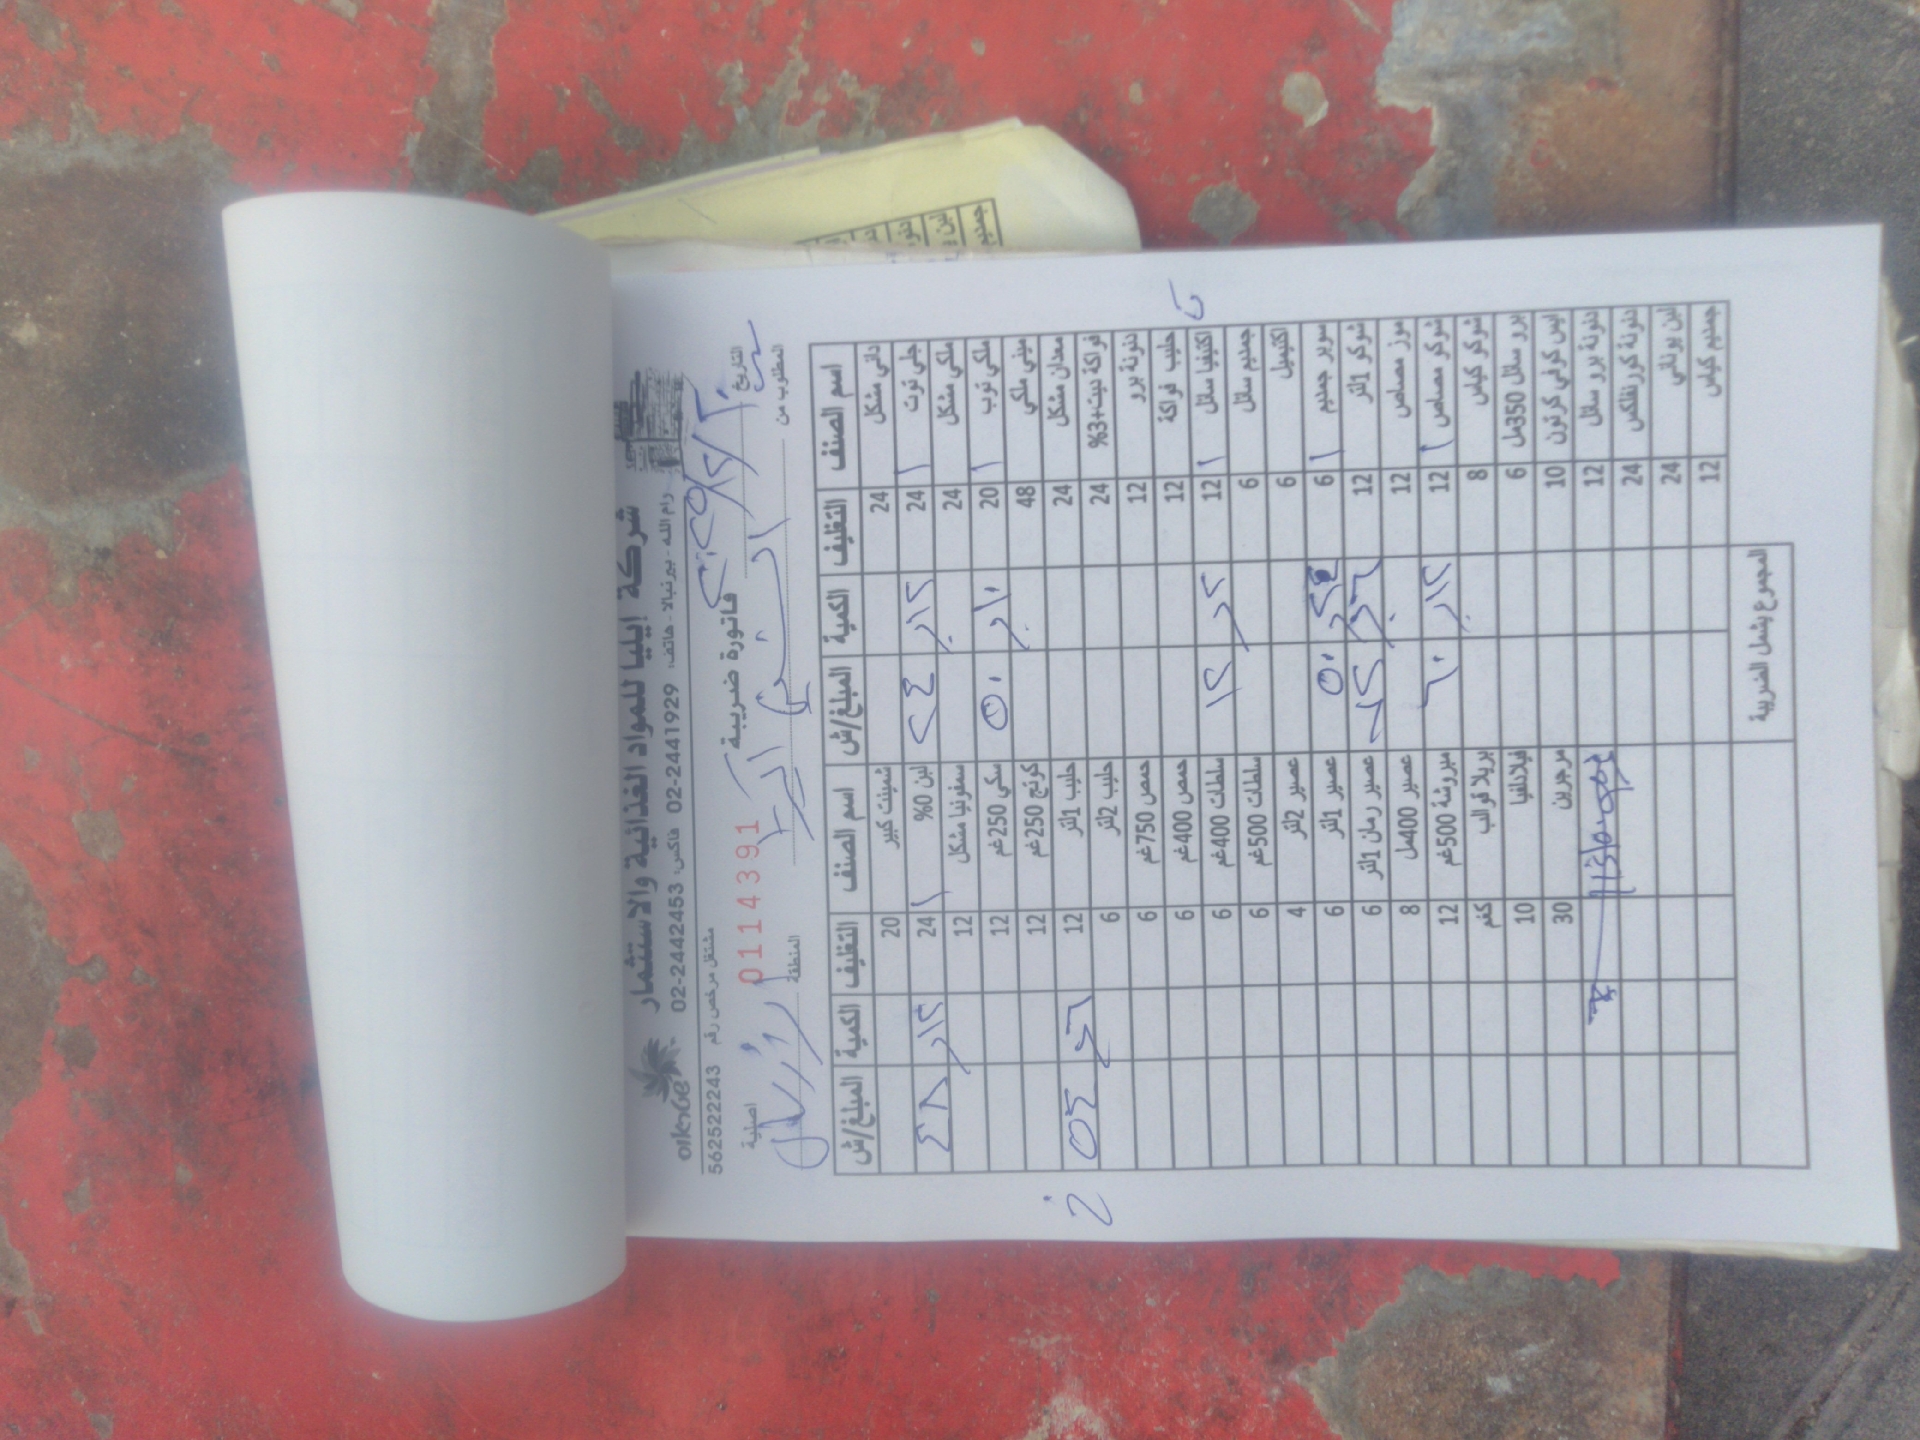 شركة ايليا للمواد الغذائية والاستثمار
رام الله - بير نبالا - هاتف: 02-2441929 فاكس: 02-2442453
مشتغل مرخص رقم 562522243
التاريخ ٢٠٢٥/١٢/٢٠ فاتورة ضريبية 0114391 اصلية
المطلوب من المنطقة
اسم الصنف التغليف الكمية المبلغ/ش اسم الصنف التغليف الكمية المبلغ/ش
داني مشكل 24 شمينت كبير 20
جلي توت ١ 24 ٢٤ لبن 0% ١ 24 ٤٨
ملكي مشكل 24 سمفونيا مشكل 12
ملكي توب ١ 20 ٥٠ سكي 250غم 12
ميني ملكي 48 كوتج 250غم 12
معدان مشكل 24 حليب 1لتر 12 ٥٤
فواكة دييت+3% 24 حليب 2لتر 6
دنونة برو 12 حمص 750غم 6
حليب فواكة 12 حمص 400غم 6
اكتيفيا سائل ١ 12 ١٢ سلطات 400غم 6
جمنيم سائل 6 سلطات 500غم 6
اكتيميل 6 عصير 2لتر 4
سوبر جمنيم ١ 6 ٥٠ عصير 1لتر 6
شوكو 1لتر 12 ٧٢ عصير رمان 1لتر 6
موز مصاص 12 عصير 400مل 8
شوكو مصاص ١ 12 ٦٠ مبروشة 500غم 12
شوكو كياس 8 بريلا قوالب كغم
برو سائل 350مل 6 فيلادلفيا 10
ايس كوفي كرتون 10 مرجرين 30
دنونة برو سائل 12
دنونة كورنفلكس 24
لبن يوناني 24
جمنيم كياس 12
المجموع يشمل الضريبة